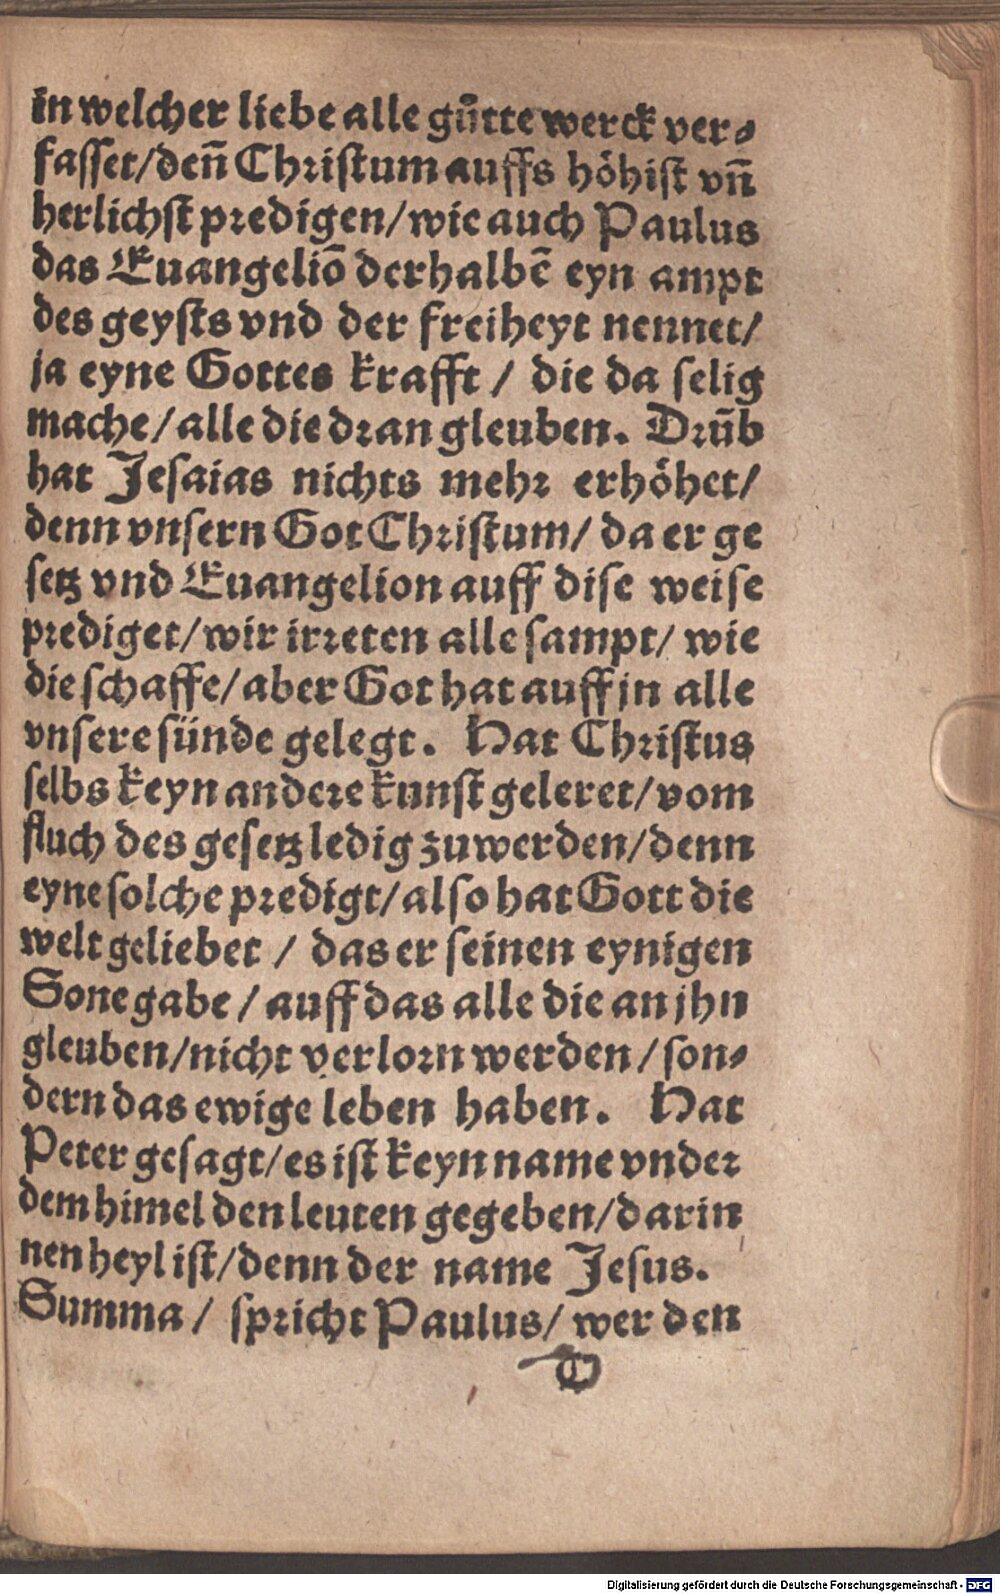 in welcher liebe alle gůtte werck ver⸗
fasset/denn̄ Christum auffs höhist vn̄
herlichst predigen/wie auch Paulus
das Euangeliō derhalbē eyn ampt
des geysts vnd der freiheyt nennet/
ja eyne Gottes krafft / die da selig
mache/alle die dran gleuben. Drūb
hat Jesaias nichts mehr erhöhet/
denn vnsern Got Christum/ da er ge
setz vnd Euangelion auff dise weise
prediget/wir irreten alle sampt/ wie
die schaffe/aber Got hat auff jn alle
vnsere sünde gelegt. Hat Christus
selbs keyn andere kunst geleret/vom
fluch des gesetz ledig zuwerden/denn
eyne solche predigt/also hat Gott die
welt geliebet / das er seinen eynigen
Sone gabe / auff das alle die an jhn
gleuben/nicht verlorn werden/son⸗
dern das ewige leben haben. Hat
Peter gesagt/es ist keyn name vnder
dem himel den leuten gegeben/darin
nen heyl ist/denn der name Jesus.
Summa / spricht Paulus/ wer den
D
Digitalisierung gefördert durch die Deutsche Forschungsgemeinschaft - DFG